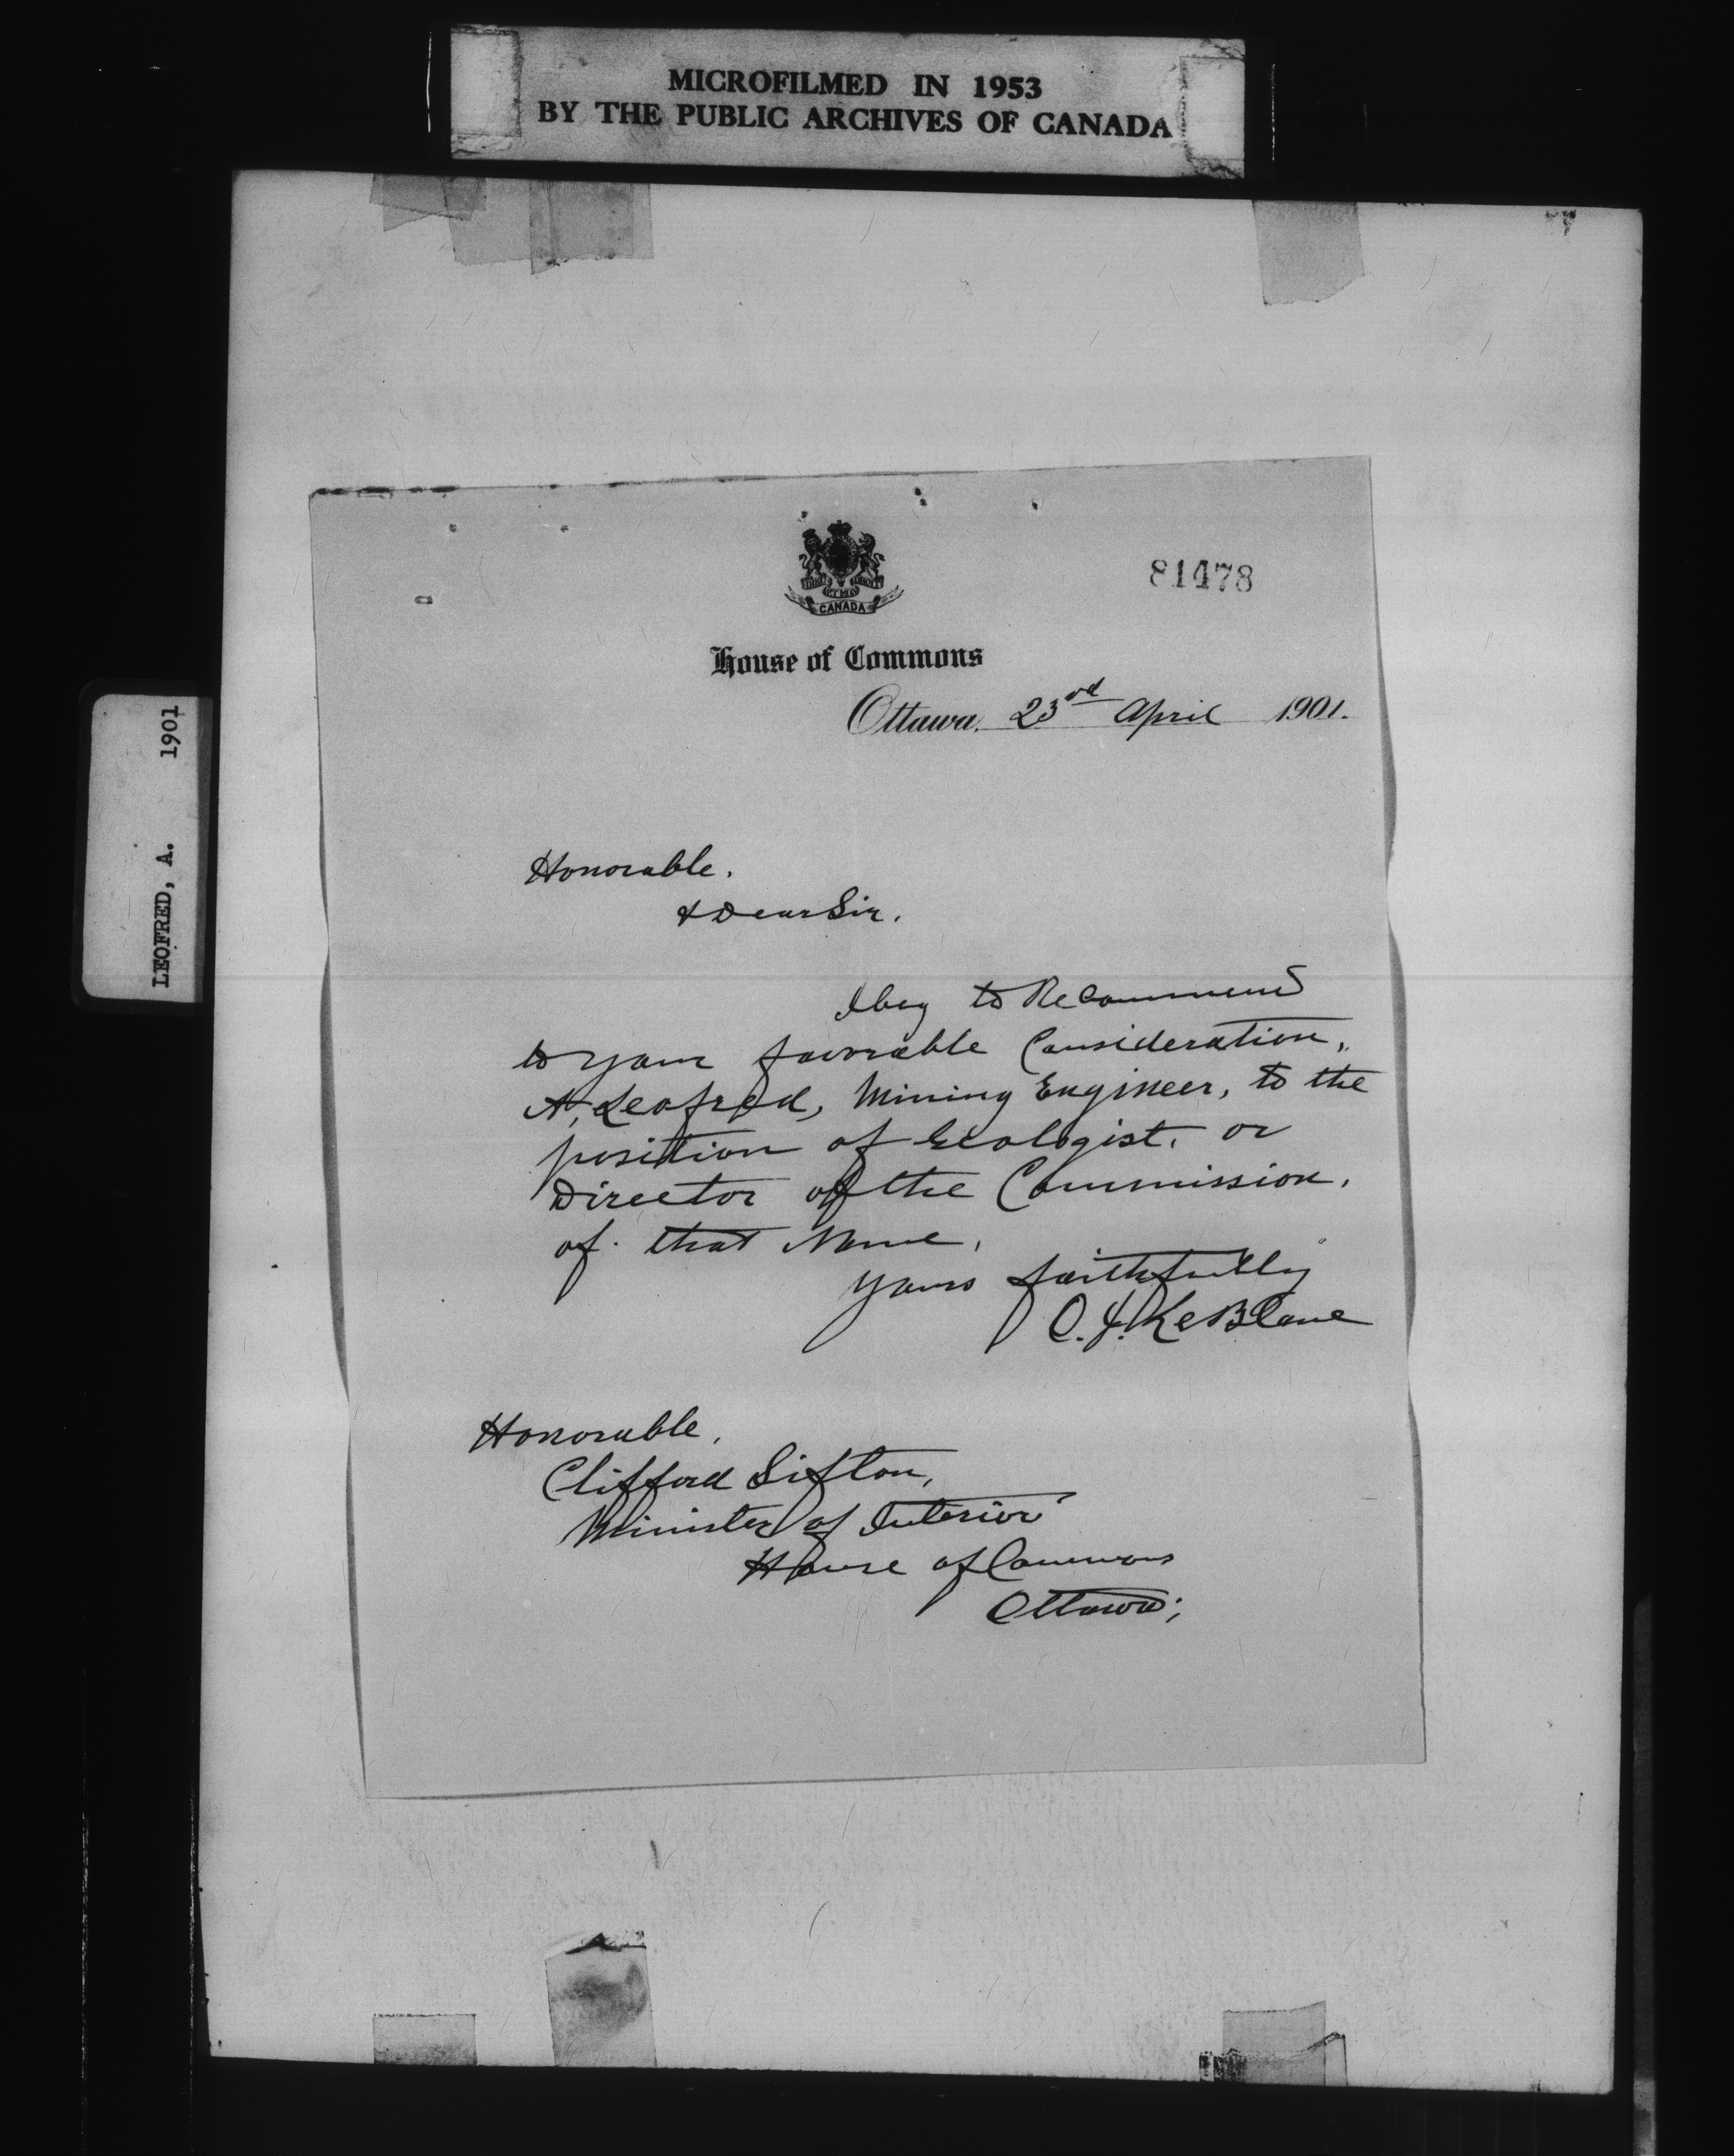 MICROFILMED IN 1953
BY THE PUBLIC ARCHIVES OF CANADA
LEOFRED, A. 1901
CANADA
81478
House of Commons
Ottawa, 23rd April 1901.
Honorable.
& Dear Sir.
I beg to Recommend
to your favorable Consideration,
A, Leofred, Mining Engineer, to the
position of Geologist. or
Director of the Commission.
of that Name,
Yours faithfully
Honorable,
Clifford Sifton,
Minister of Interior
House of Commons
Ottawa;